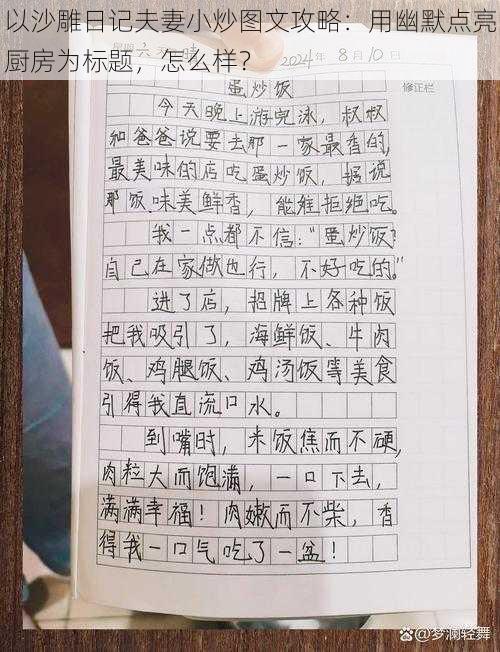 以沙雕日记夫妻小炒图文攻略：用幽默点亮
厨房为标题，怎么样？
2024年 8月10
修正栏
蛋炒饭
今天晚上游完泳，叔叔
和爸爸说要去那一家最香的，
最美味的店吃蛋炒饭，据说
那饭味美鲜香，能难拒绝吃。
我一点都不信："蛋炒饭？
自己在家做也行，不好吃的。"
进了店，招牌上各种饭
把我吸引了，海鲜饭、牛肉
饭、鸡腿饭、鸡汤饭等美食
引得我直流口水。
到嘴时，米饭焦而不硬，
肉粒大而饱满，一口下去，
满满幸福！肉嫩而不柴，香
得我一口气吃了一盆！
@梦澜轻舞